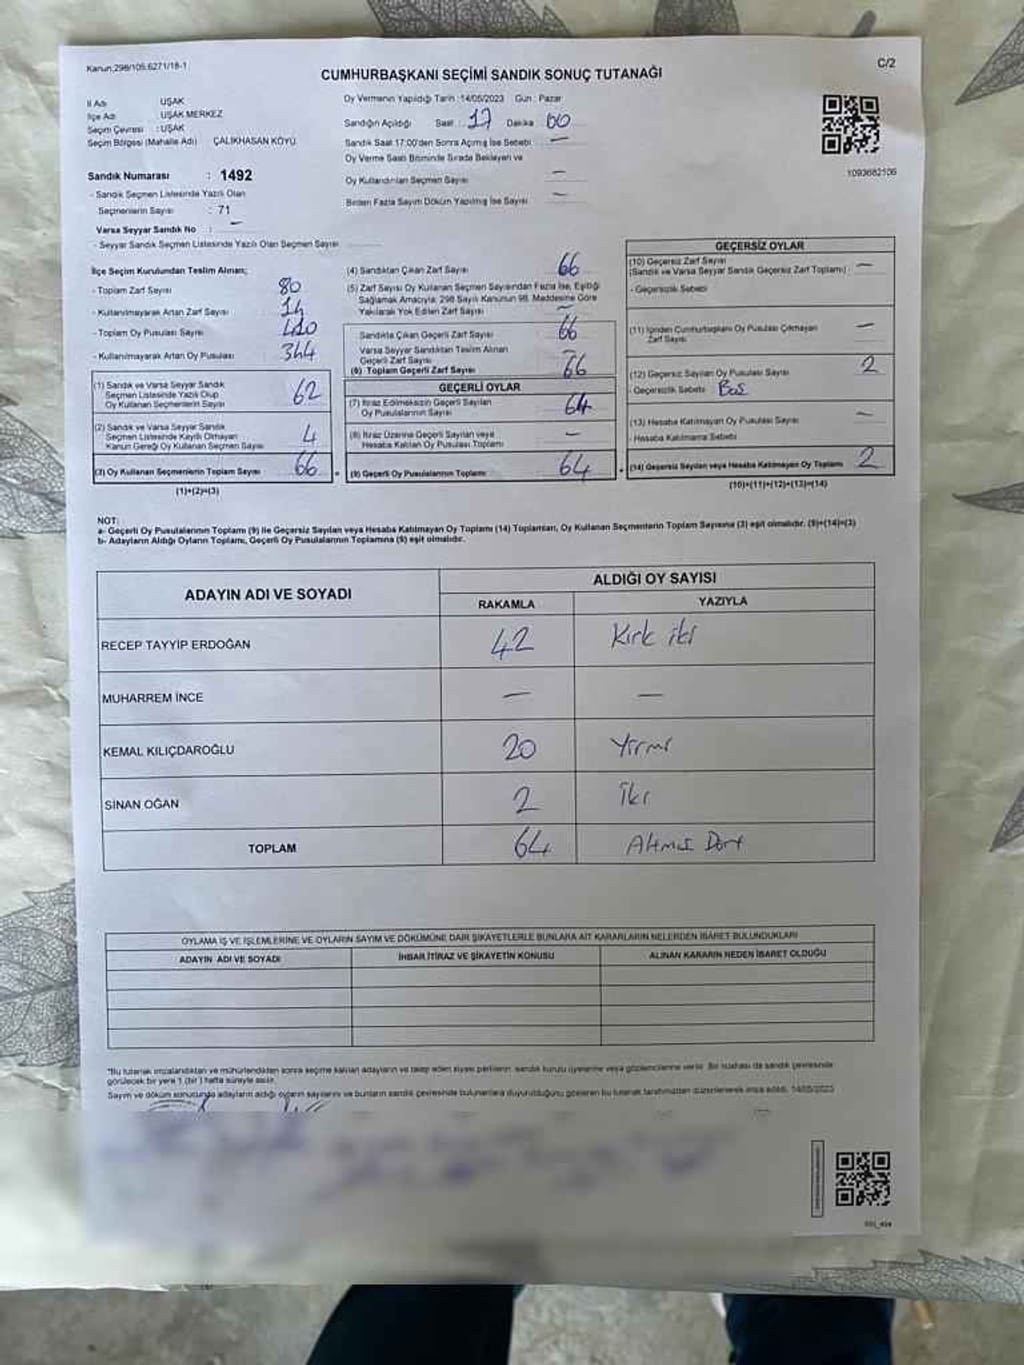 Kanun;298/105,6271/18-1
C/2
CUMHURBAŞKANI SEÇİMİ SANDIK SONUÇ TUTANAĞI
İl Adı UŞAK
İlçe Adı UŞAK MERKEZ
Seçim Çevresi : UŞAK
Seçim Bölgesi (Mahalle Adı) ÇALIKHASAN KÖYÜ
Sandık Numarası : 1492
- Sandık Seçmen Listesinde Yazılı Olan
Seçmenlerin Sayısı : 71
Varsa Seyyar Sandık No : —
- Seyyar Sandık Seçmen Listesinde Yazılı Olan Seçmen Sayısı
Oy Vermenin Yapıldığı Tarih :14/05/2023 Gün : Pazar
Sandığın Açıldığı Saat : 17 Dakika 00
Sandık Saat 17:00'den Sonra Açılmış İse Sebebi —
Oy Verme Saati Bitiminde Sırada Bekleyen ve
Oy Kullandırılan Seçmen Sayısı —
Birden Fazla Sayım Döküm Yapılmış İse Sayısı —
1093682106
İlçe Seçim Kurulundan Teslim Alınan;
- Toplam Zarf Sayısı 80
- Kullanılmayarak Artan Zarf Sayısı 14
- Toplam Oy Pusulası Sayısı 410
- Kullanılmayarak Artan Oy Pusulası 344
(1) Sandık ve Varsa Seyyar Sandık
Seçmen Listesinde Yazılı Olup
Oy Kullanan Seçmenlerin Sayısı 62
(2) Sandık ve Varsa Seyyar Sandık
Seçmen Listesinde Kayıtlı Olmayan
Kanun Gereği Oy Kullanan Seçmen Sayısı 4
(3) Oy Kullanan Seçmenlerin Toplam Sayısı 66
(1)+(2)=(3)
(4) Sandıktan Çıkan Zarf Sayısı 66
(5) Zarf Sayısı Oy Kullanan Seçmen Sayısından Fazla İse, Eşitliği
Sağlamak Amacıyla; 298 Sayılı Kanunun 98. Maddesine Göre
Yakılarak Yok Edilen Zarf Sayısı —
Sandıkta Çıkan Geçerli Zarf Sayısı 66
Varsa Seyyar Sandıktan Teslim Alınan
Geçerli Zarf Sayısı —
(6) Toplam Geçerli Zarf Sayısı 66
GEÇERLİ OYLAR
(7) İtiraz Edilmeksizin Geçerli Sayılan
Oy Pusulalarının Sayısı 64
(8) İtiraz Üzerine Geçerli Sayılan veya
Hesaba Katılan Oy Pusulası Toplamı —
(9) Geçerli Oy Pusulalarının Toplamı 64
GEÇERSİZ OYLAR
(10) Geçersiz Zarf Sayısı
(Sandık ve Varsa Seyyar Sandık Geçersiz Zarf Toplamı) —
- Geçersizlik Sebebi
(11) İçinden Cumhurbaşkanı Oy Pusulası Çıkmayan
Zarf Sayısı —
(12) Geçersiz Sayılan Oy Pusulası Sayısı 2
- Geçersizlik Sebebi Boş
(13) Hesaba Katılmayan Oy Pusulası Sayısı —
- Hesaba Katılmama Sebebi
(14) Geçersiz Sayılan veya Hesaba Katılmayan Oy Toplamı 2
(10)+(11)+(12)+(13)=(14)
NOT:
a- Geçerli Oy Pusulalarının Toplamı (9) ile Geçersiz Sayılan veya Hesaba Katılmayan Oy Toplamı (14) Toplamları, Oy Kullanan Seçmenlerin Toplam Sayısına (3) eşit olmalıdır. (9)+(14)=(3)
b- Adayların Aldığı Oyların Toplamı, Geçerli Oy Pusulalarının Toplamına (9) eşit olmalıdır.
ADAYIN ADI VE SOYADI
ALDIĞI OY SAYISI
RAKAMLA YAZIYLA
RECEP TAYYİP ERDOĞAN 42 Kırk iki
MUHARREM İNCE — —
KEMAL KILIÇDAROĞLU 20 Yirmi
SİNAN OĞAN 2 İki
TOPLAM 64 Altmış Dört
OYLAMA İŞ VE İŞLEMLERİNE VE OYLARIN SAYIM VE DÖKÜMÜNE DAİR ŞİKAYETLERLE BUNLARA AİT KARARLARIN NELERDEN İBARET BULUNDUKLARI
ADAYIN ADI VE SOYADI İHBAR İTİRAZ VE ŞİKAYETİN KONUSU ALINAN KARARIN NEDEN İBARET OLDUĞU
"Bu tutanak imzalandıktan ve mühürlendikten sonra seçime katılan adayların ve talep eden siyasi partilerin sandık kurulu üyelerine veya gözlemcilerine verilir. Bir nüshası da sandık çevresinde
görülecek bir yere 1 (bir) hafta süreyle asılır.
Sayım ve döküm sonucunda adayların aldığı oyların sayılarını ve bunların sandık çevresinde bulunanlara duyurulduğunu gösteren bu tutanak tarafımızdan düzenlenerek imza edildi. 14/05/2023